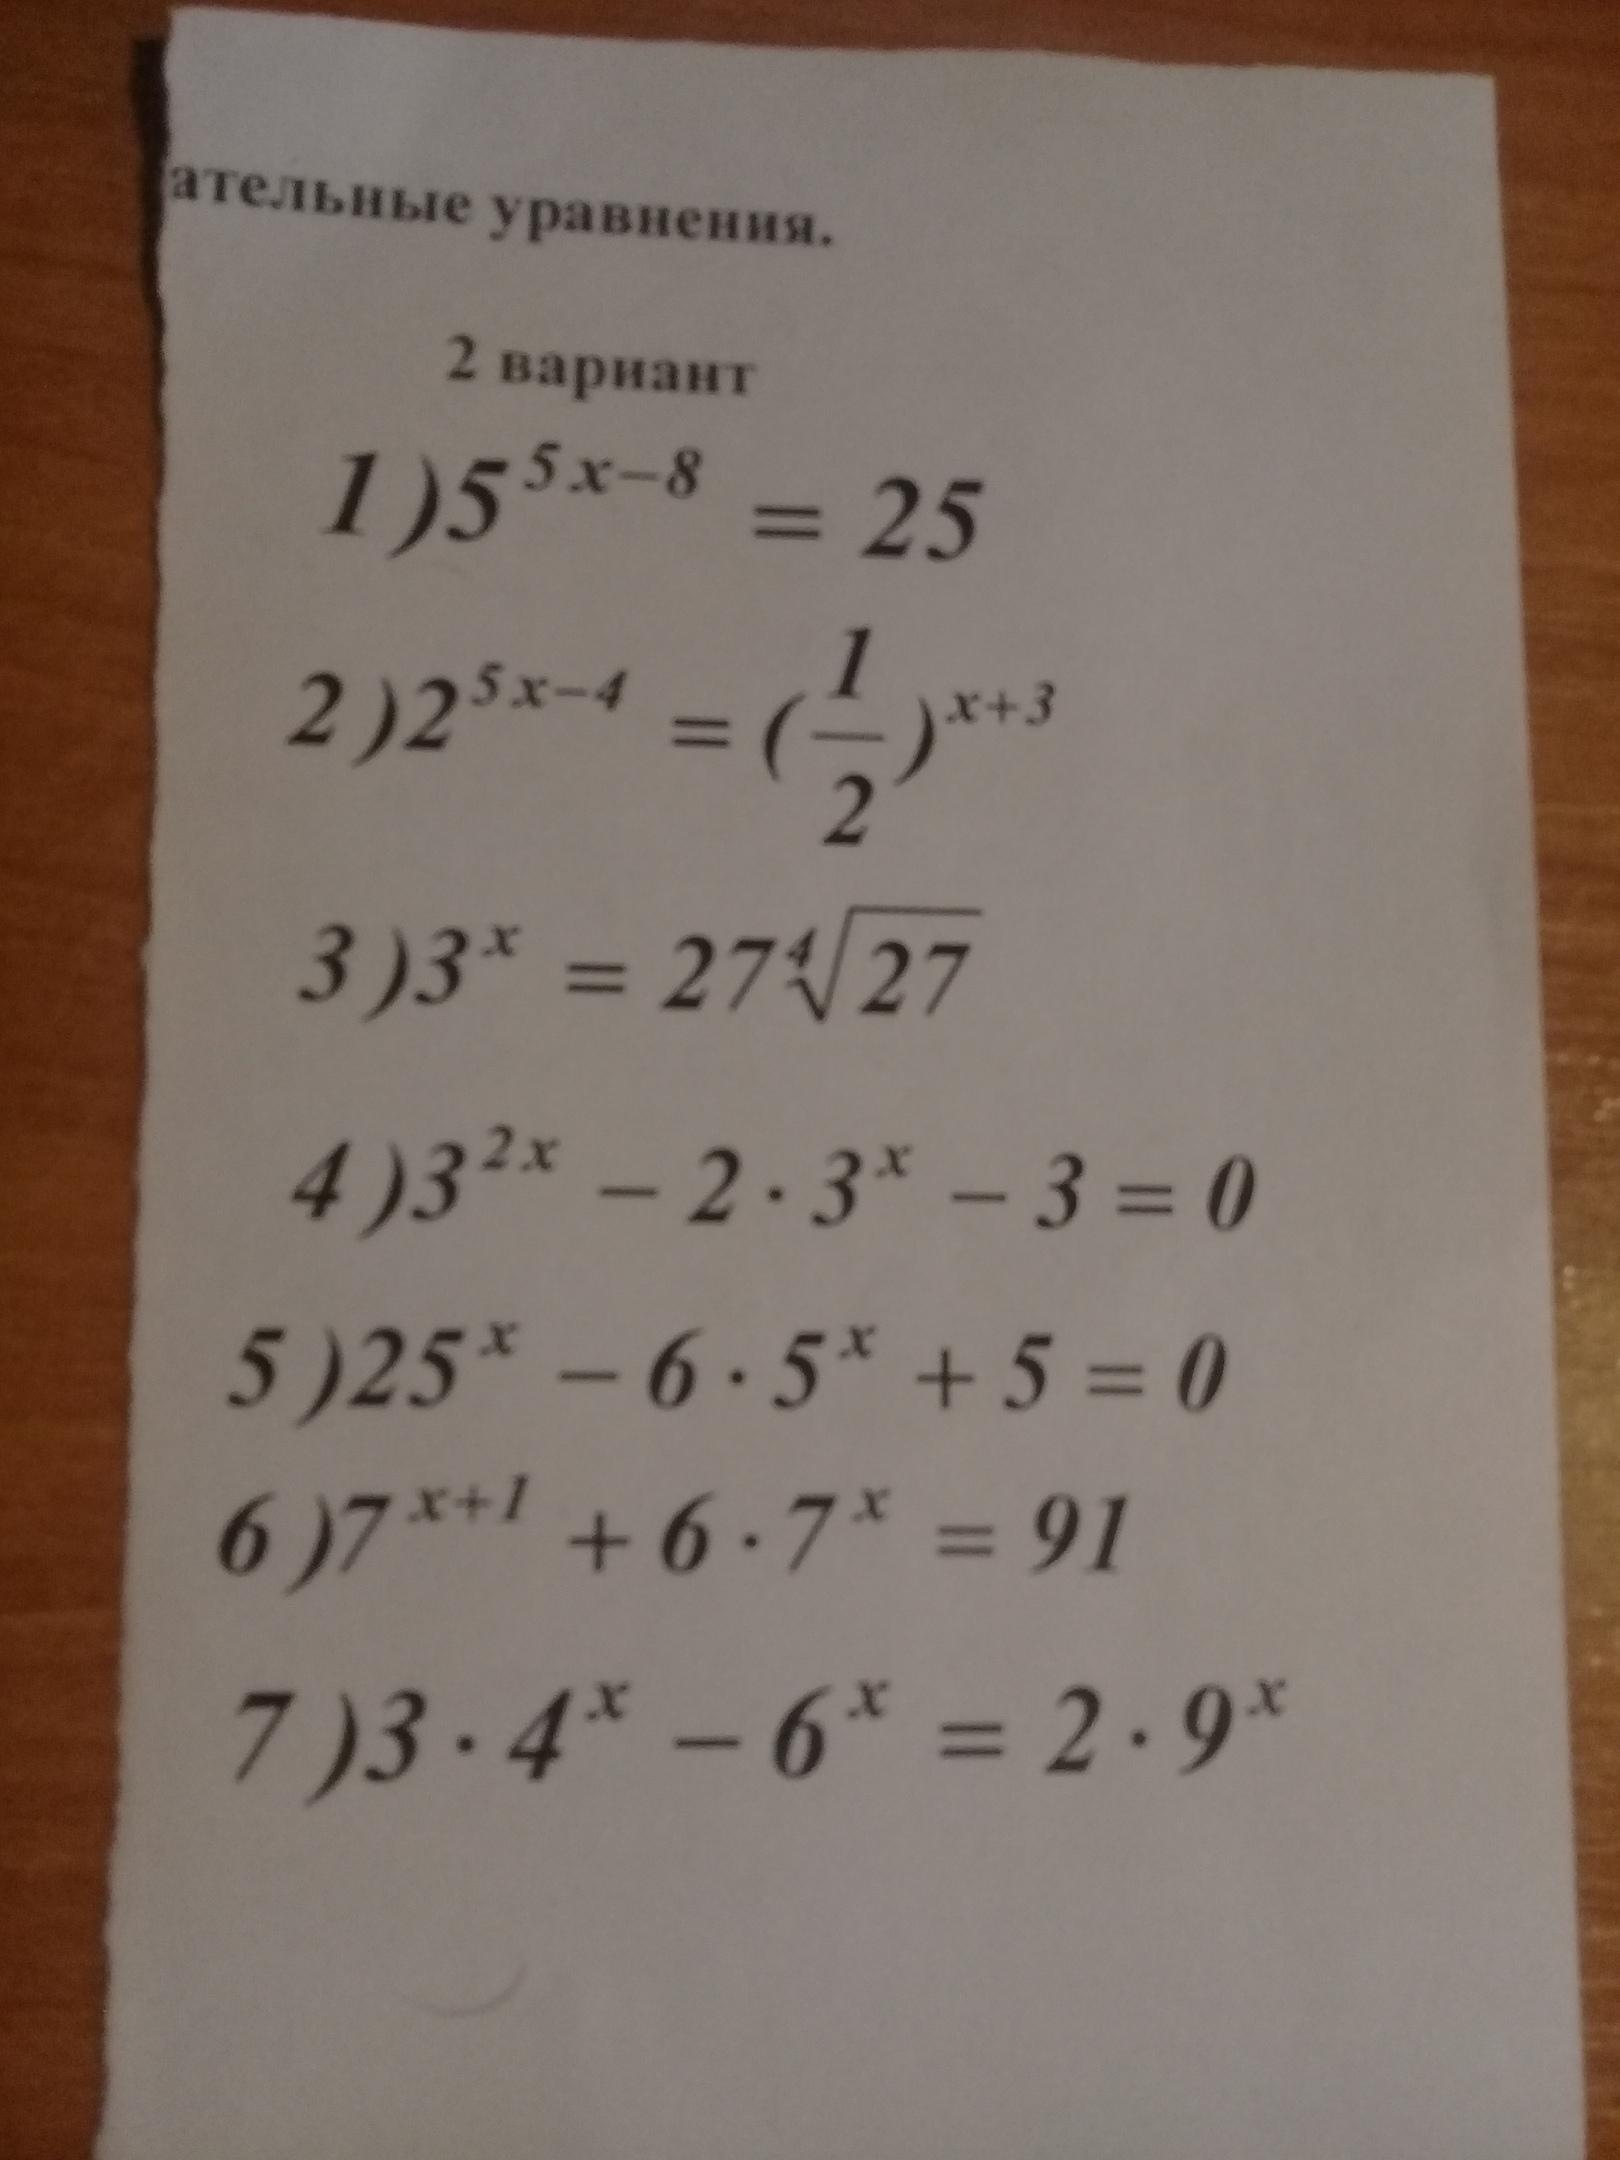 ательные уравнения.
2 вариант
1)5^{5x-8} = 25
2)2^{5x-4} = (\frac{1}{2})^{x+3}
3)3^x = 27\sqrt[4]{27}
4)3^{2x} - 2 · 3^x - 3 = 0
5)25^x - 6 · 5^x + 5 = 0
6)7^{x+1} + 6 · 7^x = 91
7)3 · 4^x - 6^x = 2 · 9^x